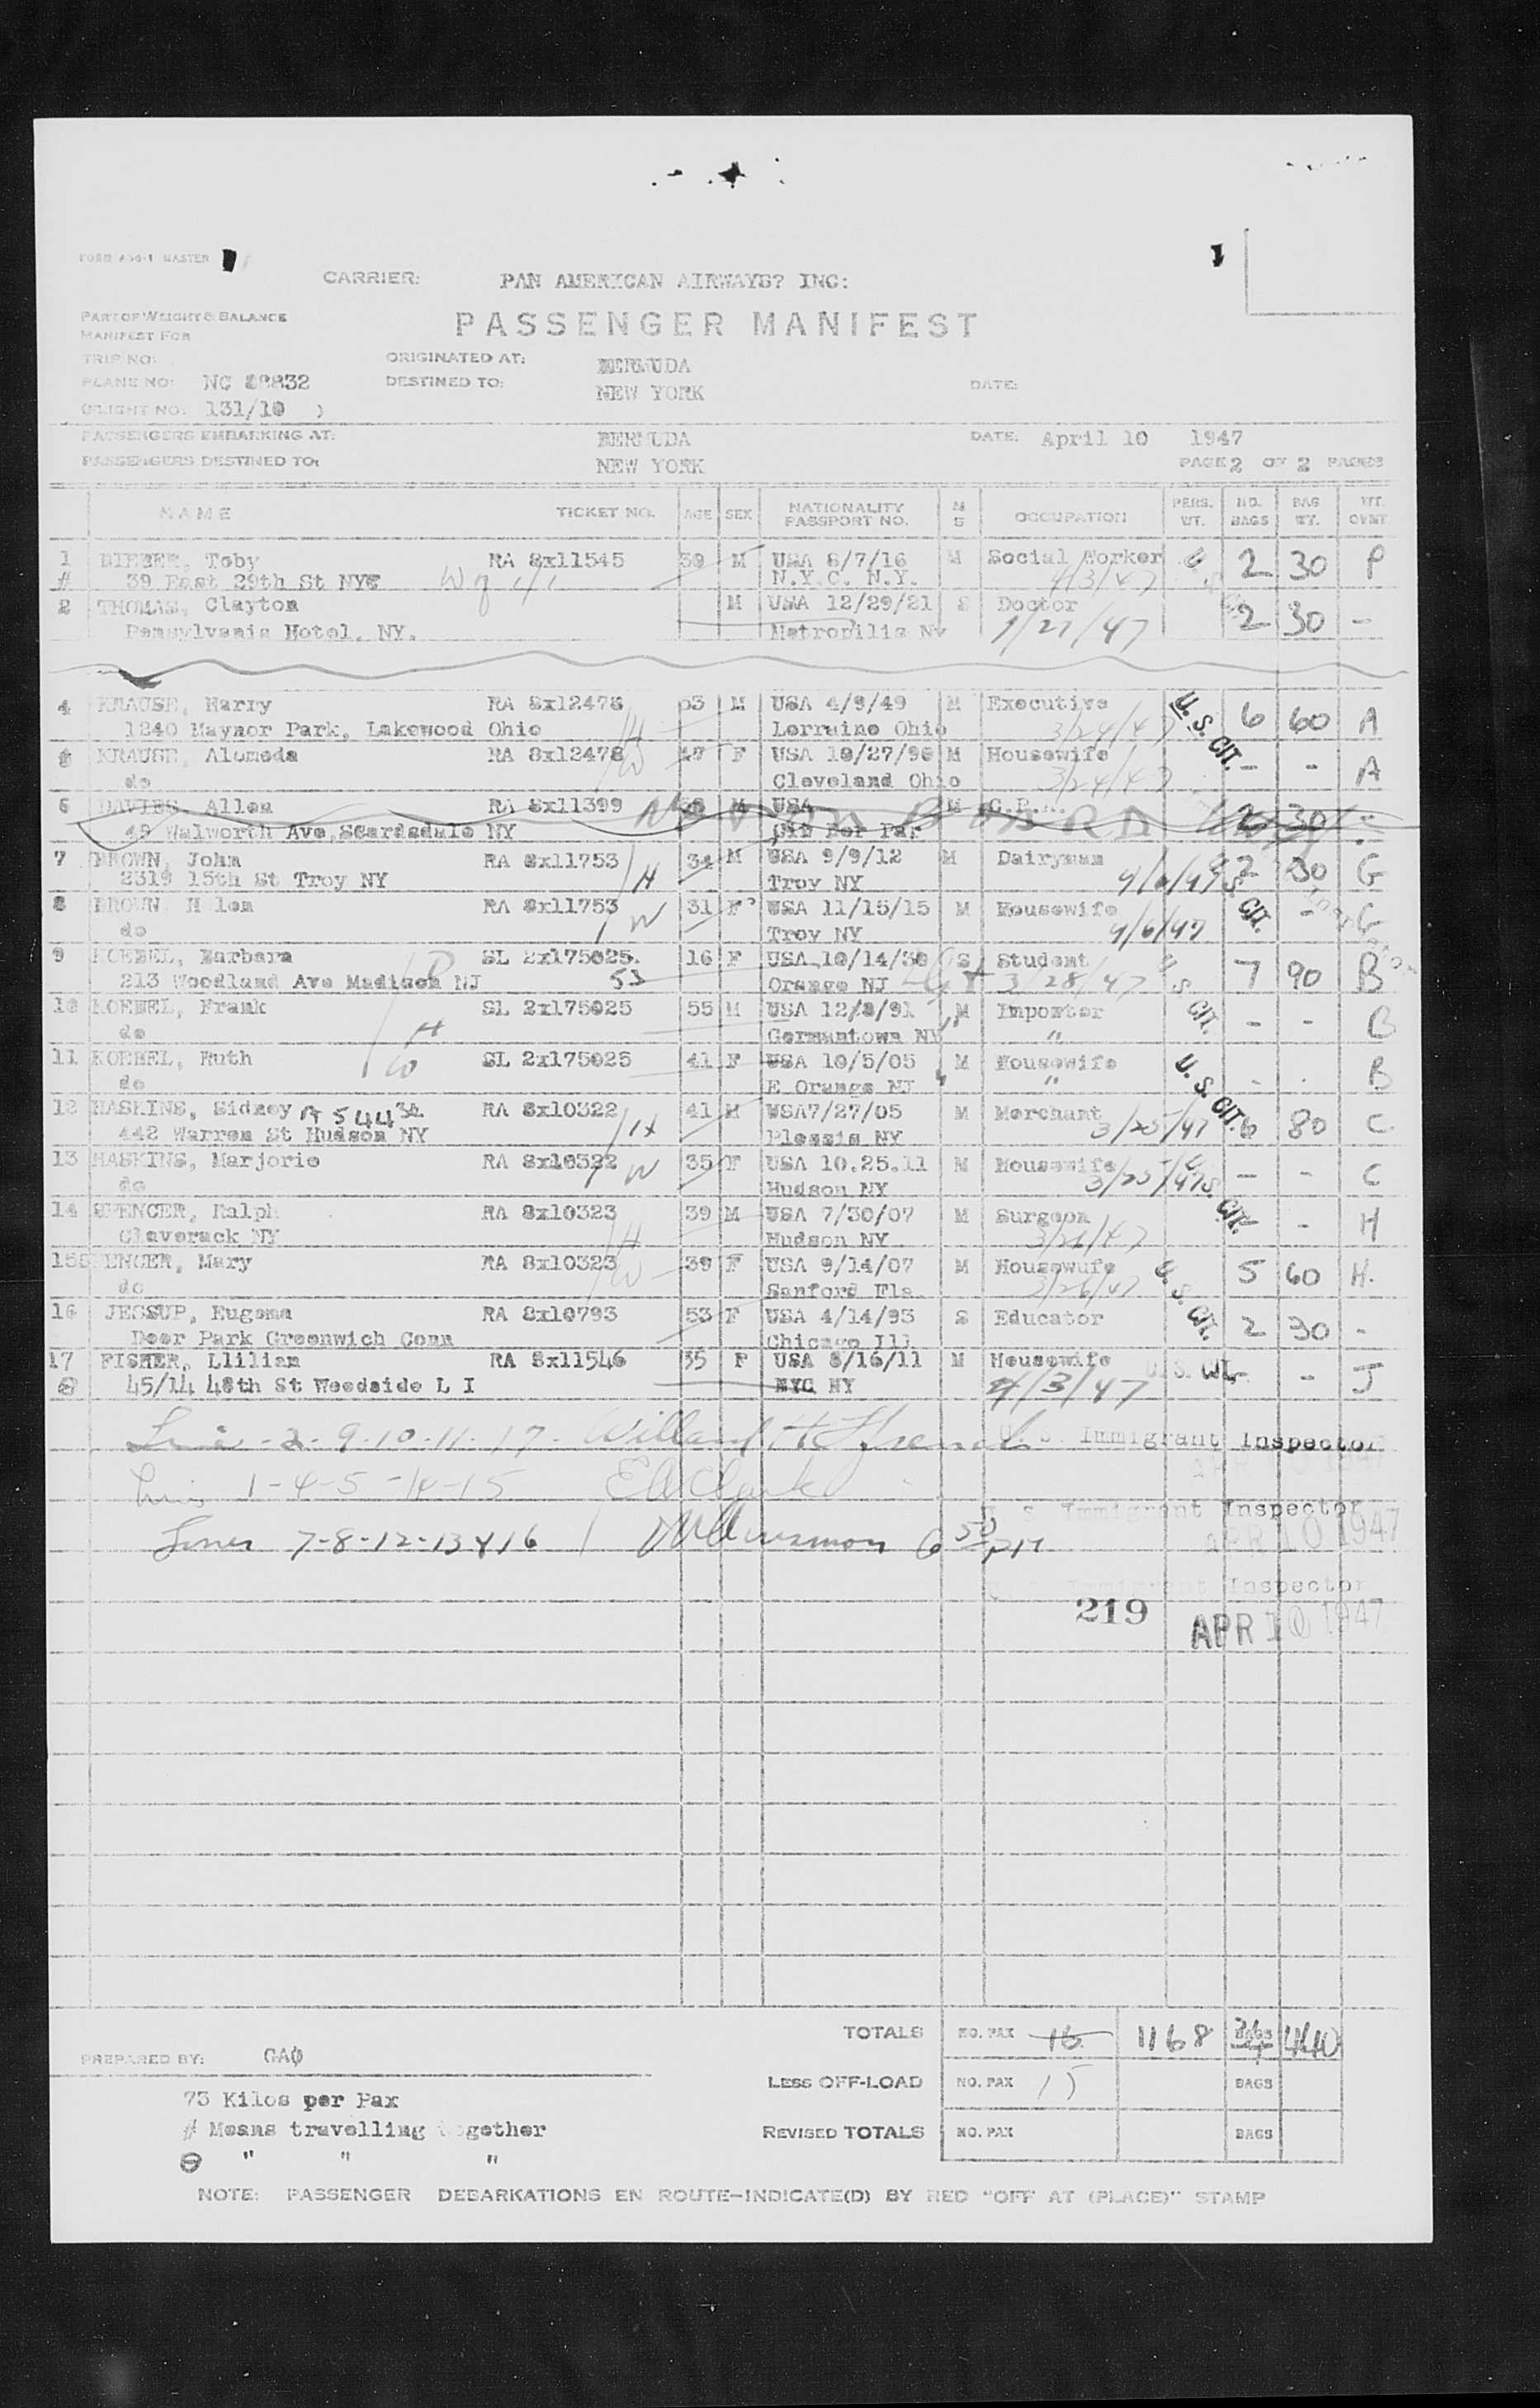 FORM A34-1 MASTER
CARRIER: PAN AMERICAN AIRWAYS? INC:
1
PART OF WEIGHT & BALANCE
MANIFEST FOR
PASSENGER MANIFEST
TRIP NO:
ORIGINATED AT: BERMUDA
PLANE NO: NC 88832
DESTINED TO: NEW YORK
DATE:
(FLIGHT NO: 131/10 )
PASSENGERS EMBARKING AT: BERMUDA DATE: April 10 1947
PASSENGERS DESTINED TO: NEW YORK PAGE 2 OF 2 PAGES
NAME TICKET NO. AGE SEX NATIONALITY PASSPORT NO. M S OCCUPATION PERS. WT. NO. BAGS BAG WT. WT. OVWT
1 Toby RA 8x11545 39 M USA 8/7/16 M Social Worker 2 30 P
# 39 East 29th St NYC N.Y.C. N.Y. 4/3/47
2 THOMAS, Clayton M USA 12/29/21 S Doctor 2 30 -
Pensylvania Hotel, NY. Metropilis NY 1/27/47
4 KRAUSE, Harry RA 8x12478 63 M USA 4/9/49 M Executive U.S. CIT. 6 60 A
1240 Maynor Park, Lakewood Ohio H Lorraine Ohio 3/24/47
KRAUSE, Alomeda RA 8x12478 W F USA 10/27/98 M Housewife - - A
do Cleveland Ohio 3/24/47
6 DAVIES, Allen RA 8x11399 M USA M C.P.A. 2 30 -
49 Walworth Ave, Scardsdale NY NOT ON BOARD
7 BROWN, John RA 8x11753 H 34 M USA 9/9/12 M Dairyman 2 30 G
2319 15th St Troy NY Troy NY 4/6/47
8 BROWN H len RA 8x11753 W 31 F USA 11/15/15 M Housewife U.S. CIT. - G
do Troy NY 4/6/47
9 KOEBEL, Barbara SL 2x175025. 16 F USA 10/14/30 S Student 7 90 B
213 Woodland Ave Madison NJ 53 Orange NJ 3/28/47
10 KOEBEL, Frank SL 2x175025 55 M USA 12/8/91 M Importer U.S. CIT. - - B
do H Germantown NY "
11 KOEBEL, Ruth SL 2x175025 41 F USA 10/5/05 M Housewife - - B
do W E Orange NJ "
12 HASKINS, Sidney RA 8x10322 H 41 M USA7/27/05 M Merchant U.S. CIT. 6 80 C
442 Warren St Hudson NY Plessis NY 3/25/47
13 HASKINS, Marjorie RA 8x10322 W 35 F USA 10.25.11 M Housewife - - C
do Hudson NY 3/25/47
14 SPENCER, Ralph RA 8x10323 39 M USA 7/30/07 M Surgeon U.S. CIT. - H
Claverack NY H Hudson NY 3/26/47
15 S ENCER, Mary RA 8x10323 W 39 F USA 9/14/07 M Housewufe 5 60 H.
do Sanford Fla. 3/26/47
16 JESSUP, Eugena RA 8x10793 53 F USA 4/14/93 S Educator U.S. CIT. 2 30 -
Deer Park Greenwich Conn Chicago Ill
17 FISHER, Llilian RA 8x11546 35 F USA 8/16/11 M Housewife - - J
45/14 48th St Woodside L I NYC NY 4/3/47
2-9-10-11-17- Willard H French U. S. Immigrant Inspector
APR 10 1947
1-4-5-14-15 E W Clark
U. S. Immigrant Inspector
APR 10 1947
Lines 7-8-12-13 & 16 6 50 PM
U. S. Immigrant Inspector
219 APR 10 1947
TOTALS NO. PAX 16 1168 BAGS 440
PREPARED BY: GAO
LESS OFF-LOAD NO. PAX 15 BAGS
73 Kilos per Pax
# Means travelling together
REVISED TOTALS NO. PAX BAGS
" " "
NOTE: PASSENGER DEBARKATIONS EN ROUTE-INDICATE(D) BY RED "OFF AT (PLACE)" STAMP